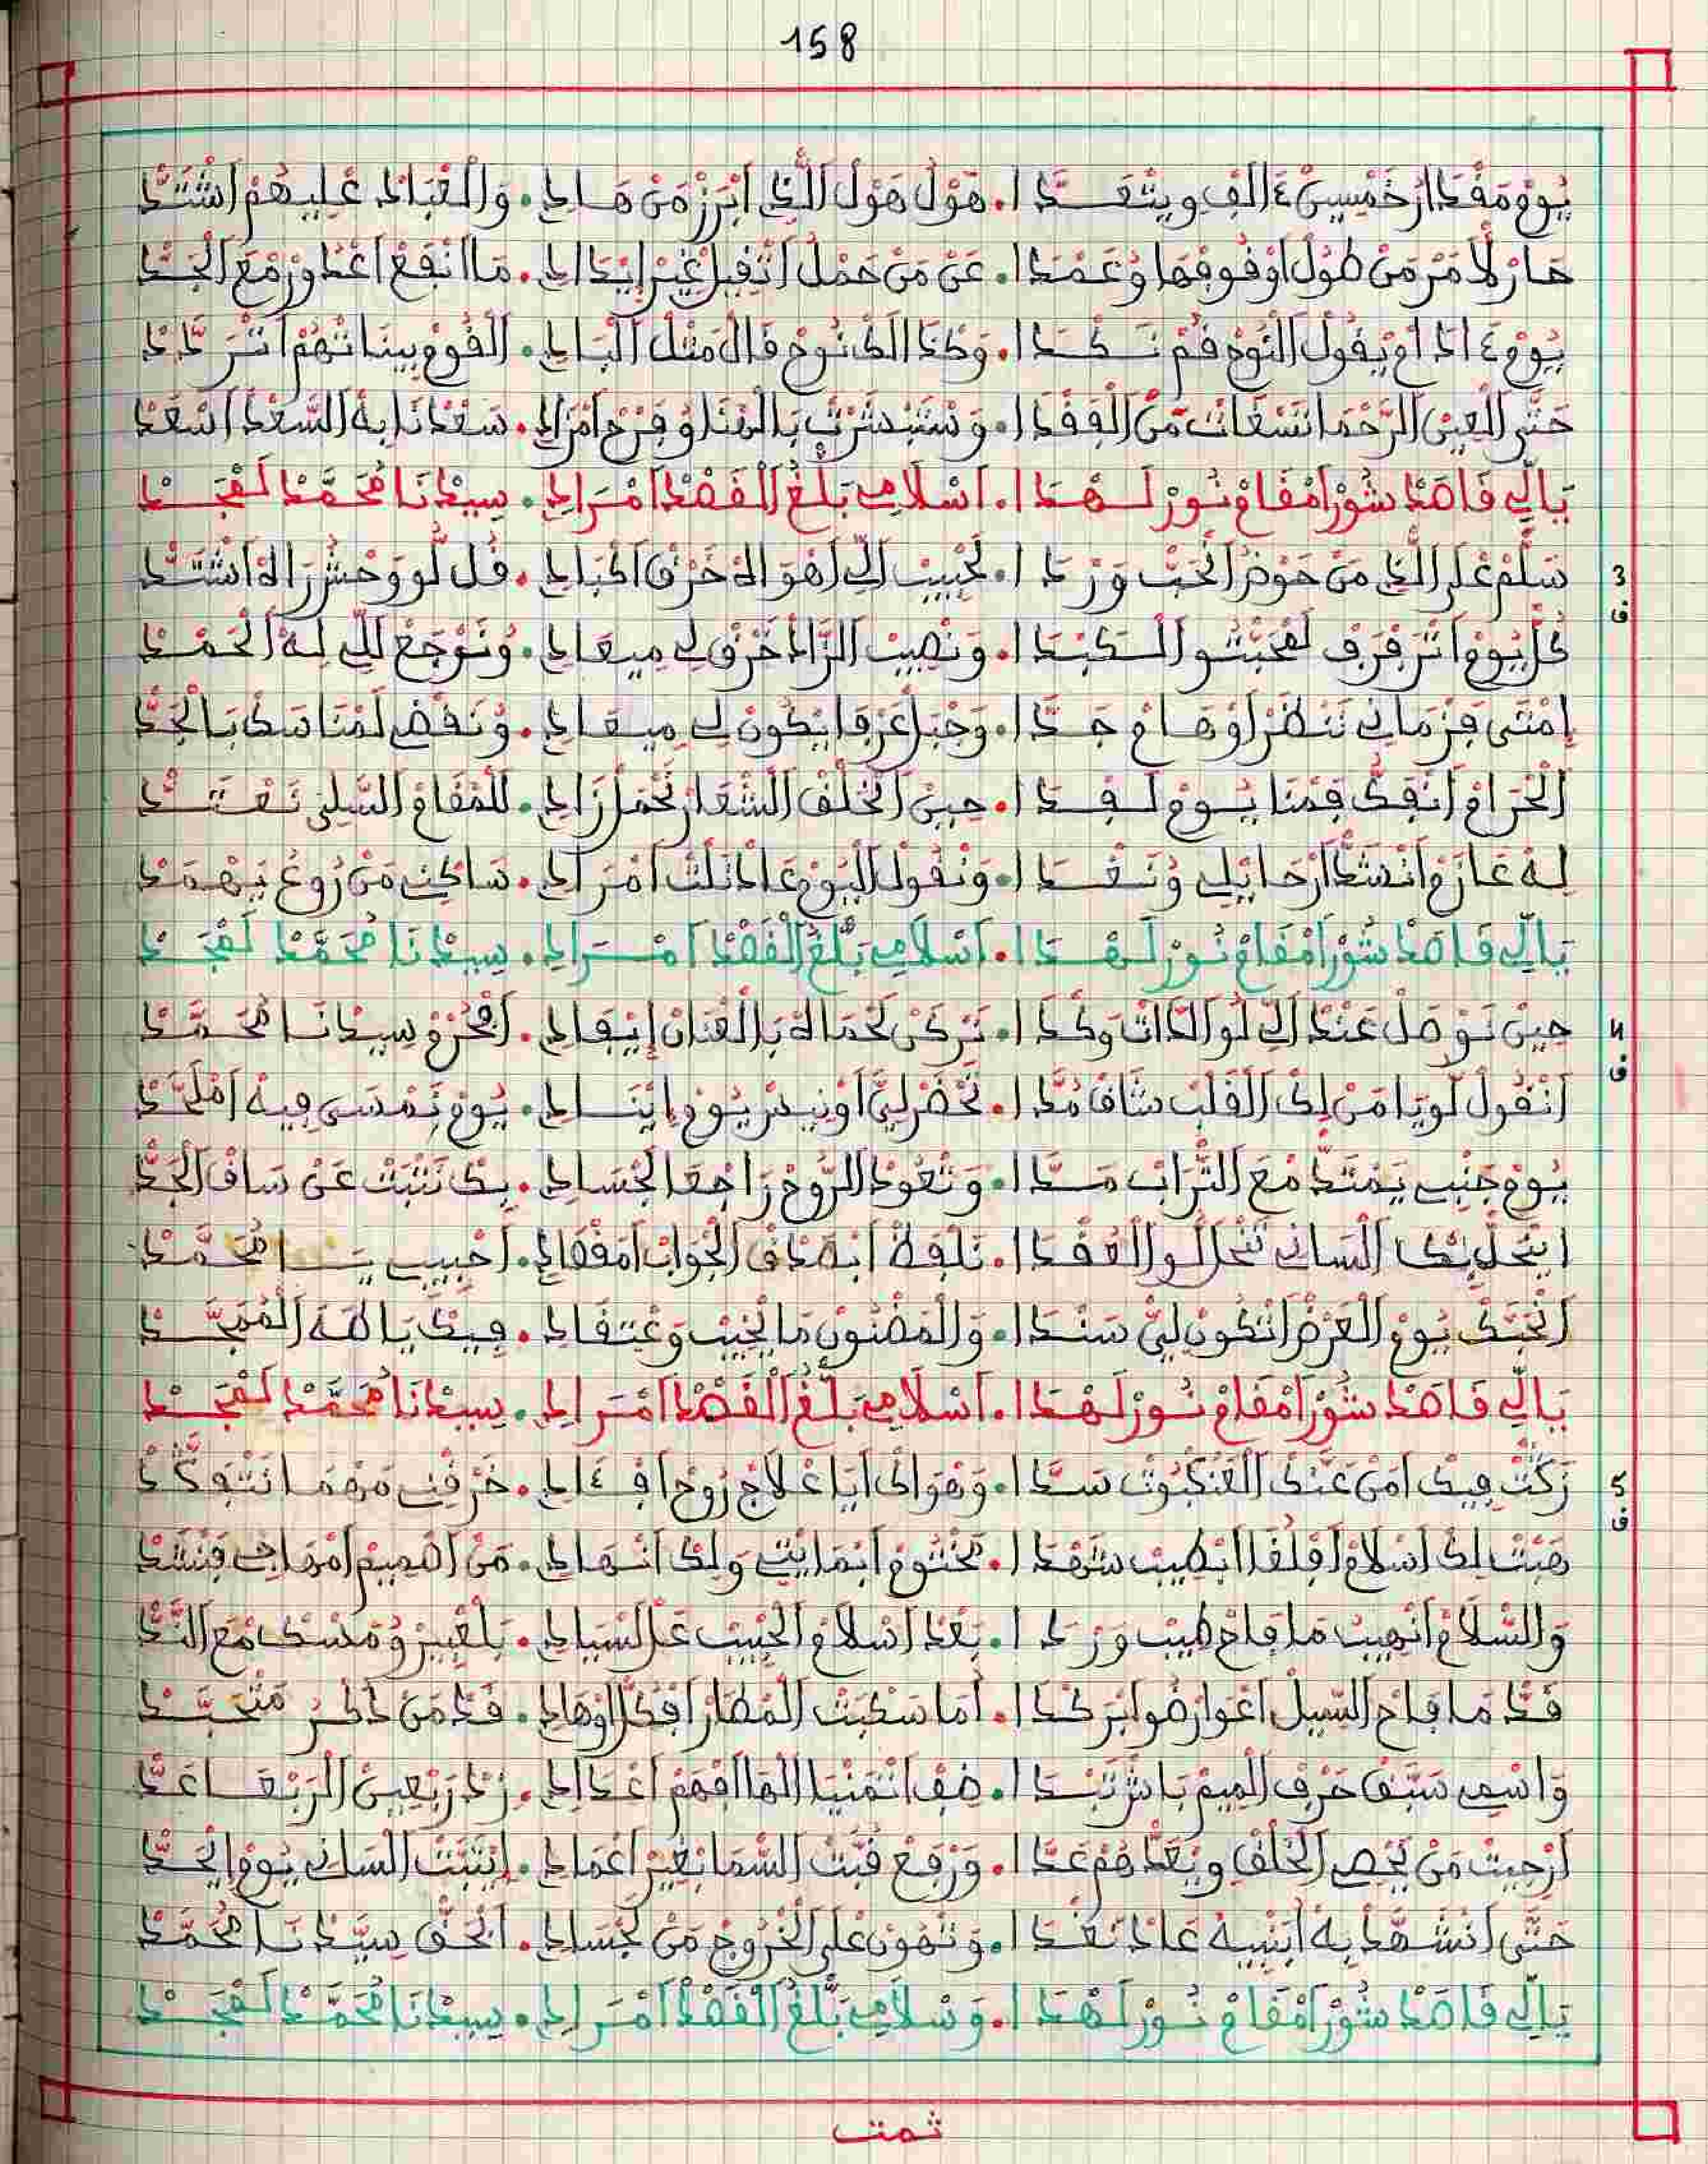 158
يُومْ مَقْدَارْ خَمْسِينْ ءَالَفْ ويتْعَدَّا. هَوْلْ هَوْلْ الَّذِي ابْرَزْ مَنْ هَادِي. وَالْعْبَادْ عْلِيهُمْ اشْتَدّْ
حَارْ لَامَرْ مَنْ طُولْ اوْقُوفْهَا وْعَمْدَا. عَنْ مَنْ حَمْلْ اثْقِيلْ غِيرْ ايْدَادِي. مَا انْفَعْ اعْذُورْ مْعَ الْجَدّْ
يُومْ ءَادَامْ يْقُولْ النُوحْ قُمْ نَكْدَا. وَكْذَالَكْ نُوحْ قَالْ مَثْلْ الْبَادِي. الْقُومْ بِينَاتْهُمْ اتْرَدَّدْ
حَتَّى الْعِينْ الرَّحْمَا نَسْعَاتْ مَنْ الْفَقْدَا. وَسْتَبْشَرْتْ بَالْهْنَا وُفْرَحْ امْرَادِي. سَعْدْنَا بِهْ السَّعْدْ اسْعَدْ
يَالِّي قَاصَدْ شُورْ امْقَامْ نُورْ لَهْدَا. اسْلَامِي بَلَّغْ الْقَصْدْ امْرَادِي. سِيدْنَا مُحَمَّدْ لَمْجَدْ
3
ف
سَلَّمْ عْلَى الَّذِي مَنْ حَوْضْ الْحَبْ وَرْدَا. لَحْبِيبْ الِّي اهْوَاهْ حْرَقْ اكْبَادِي. قُلْ لُو وَحْشْ رَاهْ اشْتَدّْ
كُلْ يُومْ اتْرَفْرَفْ لَمْحَبْتُو الْكَبْدَا. وَنْصِيبْ الزَّادْ حْرَقْ لِي مِيعَادِي. وُنْوَجَّعْ لَلِّي لِهْ الْحَمْدْ
امْتَى فَزْمَانِي نَنْظَرْ اوْهَامْ جَدَّا. وَجْبَلْ عَرْفَا يْكُونْ لِي مِيعَادِي. وُنَقْضِي لَمْنَاسَكْ بَالْجَدّْ
الْحْرَامْ انْفَكّْ فَمْنَا يُومْ لَفْدَا. حِينْ الْخَلْفْ الشْعَارْ نَحْمَلْ زَادِي. لَلْمْقَامْ السِّيلِي نَعْتَدّْ
لِهْ عَازَمْ انْشَدّْ ارْحَايْلِي وُنَغْدَا. وَنْقُولْ الْيُومْ عَادْ نَلْتْ امْرَادِي. سَاكْنِي مَنْ رُوعْ يَهْمَدْ
يَالِّي قَاصَدْ شُورْ امْقَامْ نُورْ لَهْدَا. اسْلَامِي بَلَّغْ الْقَصْدْ امْرَادِي. سِيدْنَا مُحَمَّدْ لَمْجَدْ
4
ف
حِينْ نُوصَلْ عَنْدْ الِّي لُو الذَّاتْ وَكْدَا. نَرْكَنْ لَحْمَاهْ بَالْعْنَانْ ايْفَادِي. افْخَرُو سِيدْنَا مُحَمَّدْ
انْقُولْ لُو يَا مَنْ لِكْ الْقَلْبْ شَافْ مُدَّا. تَحْضَرْ لِيَّ اوْنِيسْ يُومْ ايْنَادِي. يُومْ نَمْسَى فِيهْ امْلَحَّدْ
يُومْ جَنْبِي يَمْتَدّْ مْعَ التْرَابْ مَدَّا. وَتْعُودْ الرُّوحْ رَاجْعَا لَجْسَادِي. بِكْ نَتْبَتْ عَنْ سَاقْ الْجَدّْ
ايْحَلْ بِكْ الْسَانِي تَنْحَلْ لُو الْعُقْدَا. نَلْفَظْ ابْصَدْقْ الْجْوَابْ امْقْصَادِي. احْبِيبِي يَا مُحَمَّدْ
انْحَبَّكْ يُومْ الْعَرْضْ اتْكُونْ لِيَّ سَنْدَا. وَالْمَضْنُونْ مَا يْخِيبْ وَعْتَقَادِي. فِيكْ يَا طَهَ الْمُمَجَّدْ
يَالِّي قَاصَدْ شُورْ امْقَامْ نُورْ لَهْدَا. اسْلَامِي بَلَّغْ الْقَصْدْ امْرَادِي. سِيدْنَا مُحَمَّدْ لَمْجَدْ
5
ف
رَكْتْ فِيكْ امَنْ عَنْدَكْ الْعَنْكْبُوتْ سَدَّا. وَهْوَاكْ ايَا عْلَاجْ رُوحْ افْءَادِي. حَرْقْنِي مَهْمَا نَتْفَكَّدْ
هَبْتْ لِكْ اسْلَامْ اقْلَفَا ابْطِيبْ شَهْدَا. مَخْتُومْ ابْمَايْتِي وَلِكْ انْهَادِي. مَنْ اصْمِيمْ امْهَاجْ فَنْشَدْ
وَالسْلَامْ انْهِيبْ مَا فَاحْ طِيبْ وَرْدَا. بَعْدْ اسْلَامْ الْحْبِيبْ عَلْ لَسْيَادِي. بَلْعْبِيرْ وُمَسْكْ مْعَ النَّدّْ
قَدّْ مَا فَاحْ السِّيلْ اعْوَارْضُو ابْرَكْدَا. امَا سَكْبَتْ الْمْطَارْ افْكُلْ اوْهَادِي. قَدْ مَنْ ذْكَرْ مَتْحَبَّدْ
وَاسْمِي سَبَّقْ حَرْفْ الْمِيمْ بَاشْ تَبْدَا. ضِفْ اثْمَنْيَا الْهَا افْهَمْ اعْدَادِي. زْدْ رَبْعِينْ الَرْبْعَا عَدّْ
ارْجِيتْ مَنْ يْحْصِي الْخَلْقْ ويْعَدّْهُمْ عَدَّا. وَرْفَعْ قُبَّتْ السْمَا بْغِيرْ اعْمَادِي. ايْتَبَّتْ الْسَانِي يُومْ الْحَدّْ
حَتَّى انْشَهَّدْ بِهْ ابْنْبِيهْ عَادْ نَغْدَا. وَتْهُونْ عْلَى الْخْرُوجْ مَنْ لَجْسَادِي. ابْحَقّْ سِيَّدْنَا مُحَمَّدْ
يَالِّي قَاصَدْ شُورْ امْقَامْ نُورْ لَهْدَا. وَسْلَامِي بَلَّغْ الْقَصْدْ امْرَادِي. سِيدْنَا مُحَمَّدْ لَمْجَدْ
تمت